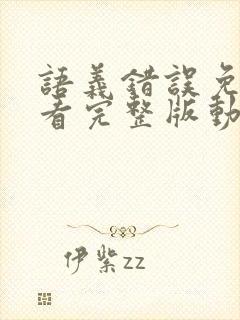 語義錯誤免
看完整版動
伊紫zz